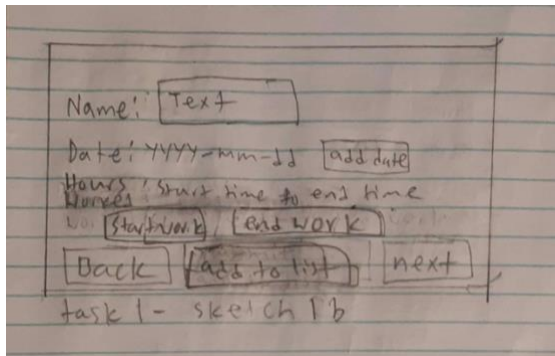 Name: Text
Date: YYYY-mm-dd add date
Hours Worked : Start time to end time
Start work end work
Back add to list next
task 1 - sketch lib